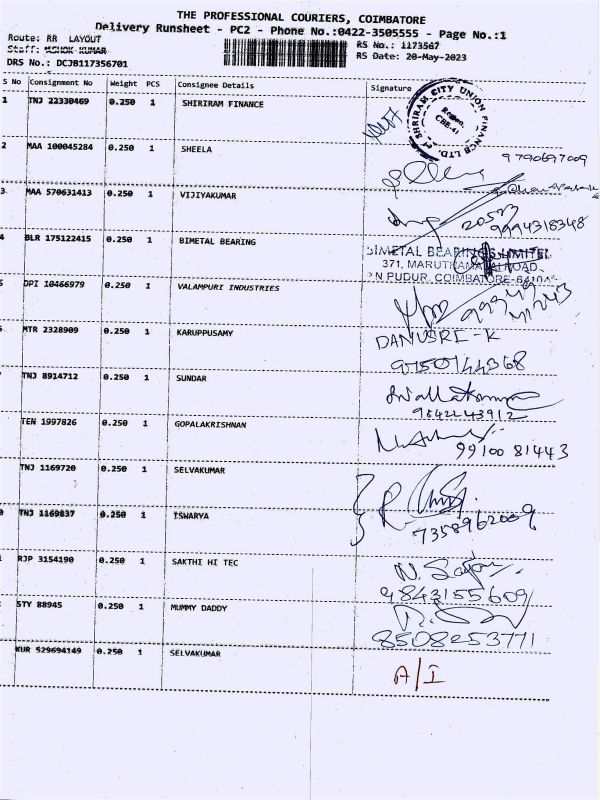 THE PROFESSIONAL COURIERS, COIMBATORE
Delivery Runsheet - PC2 - Phone No.:0422-3505555 - Page No.:1
Route: RR LAYOUT
RS No.: 1173567
Staff: ASHOK KUMAR
RS Date: 20-May-2023
DRS No.: DCJB117356701
S No Consignment No Weight PCS Consignee Details Signature
1 TNJ 22330469 0.250 1 SHIRIRAM FINANCE
SHRIRAM CITY UNION FINANCE LTD.
Region
CBE-41
2 MAA 100045284 0.250 1 SHEELA
9790697009
3 MAA 570631413 0.250 1 VIJIYAKUMAR
9994318348
4 BLR 175122415 0.250 1 BIMETAL BEARING
BIMETAL BEARINGS LIMITED
371, MARUTHAMALAI ROAD
N PUDUR, COIMBATORE-6410
DPI 10466979 0.250 1 VALAMPURI INDUSTRIES
MTR 2328909 0.250 1 KARUPPUSAMY
DANUSRE-K
9750144368
TNJ 8914712 0.250 1 SUNDAR
9842243912
TEN 1997826 0.250 1 GOPALAKRISHNAN
99100 81443
TNJ 1169720 0.250 1 SELVAKUMAR
7358962009
TNJ 1169837 0.250 1 ISWARYA
RJP 3154190 0.250 1 SAKTHI HI TEC
9843155609
STY 88945 0.250 1 MUMMY DADDY
8508253771
KUR 529694149 0.250 1 SELVAKUMAR
A/I